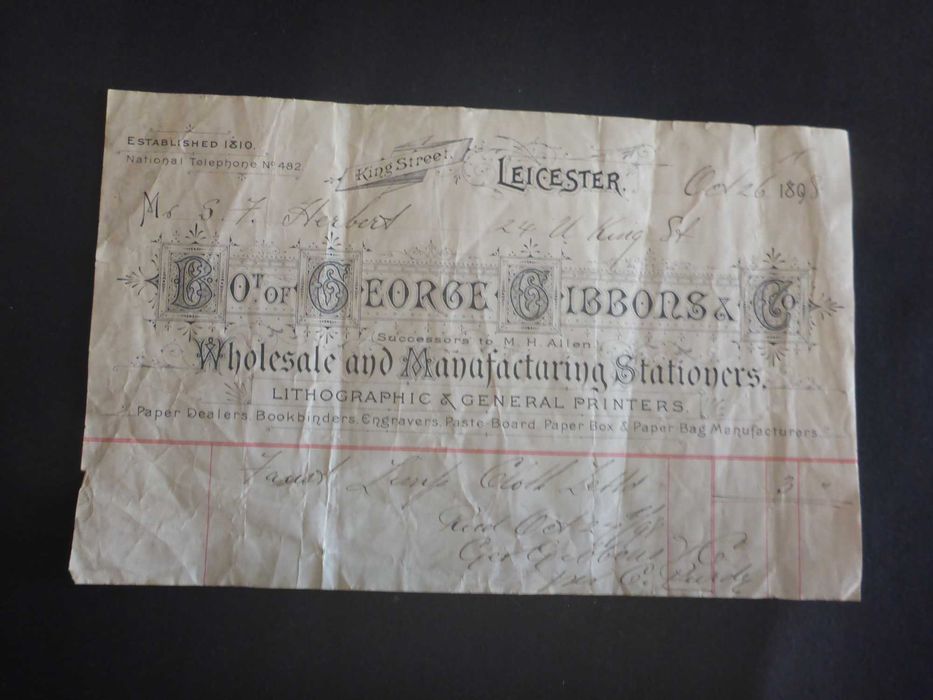 ESTABLISHED 1810.
National Telephone No 482.
King Street,
LEICESTER.
Oct 26 1898
Mr S. F. Herbert
24 U King St
Bot. OF GEORGE GIBBONS & Co
(Successors to M. H. Allen)
Wholesale and Manufacturing Stationers,
LITHOGRAPHIC & GENERAL PRINTERS.
Paper Dealers, Bookbinders, Engravers, Paste-Board, Paper Box & Paper Bag Manufacturers.
Faust Limp Cloth 3
Oct 26/98
Geo Gibbons & Co
per C. Purdy